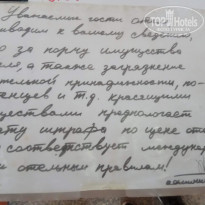 TopHotels
Уважаемые гости от
водим к вашему сведению,
о за порчу имущества
еля, а также загрязнение
тельной принадлежности, по-
енцев и т.д. красящими
ществами предполагает
ату штрафа по цене оте
о соответствует междунар
и отельным правилам!